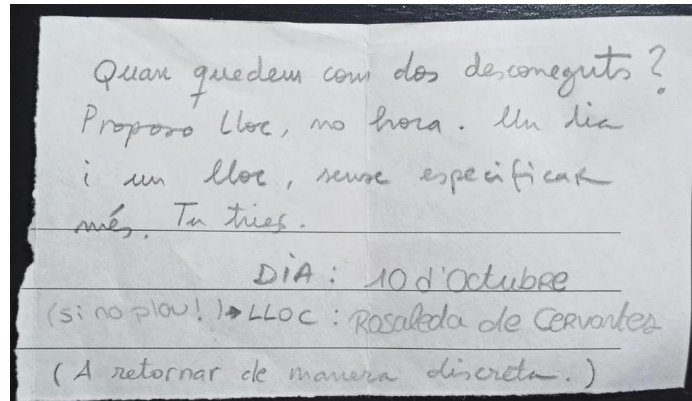 Quan quedem com dos desconeguts?
Proposo lloc, no hora. Un dia
i un lloc, sense especificar
més. Tu tries.
DIA: 10 d'Octubre
(si no plou!)→LLOC: Rosaleda de Cervantes
(A retornar de manera discreta.)